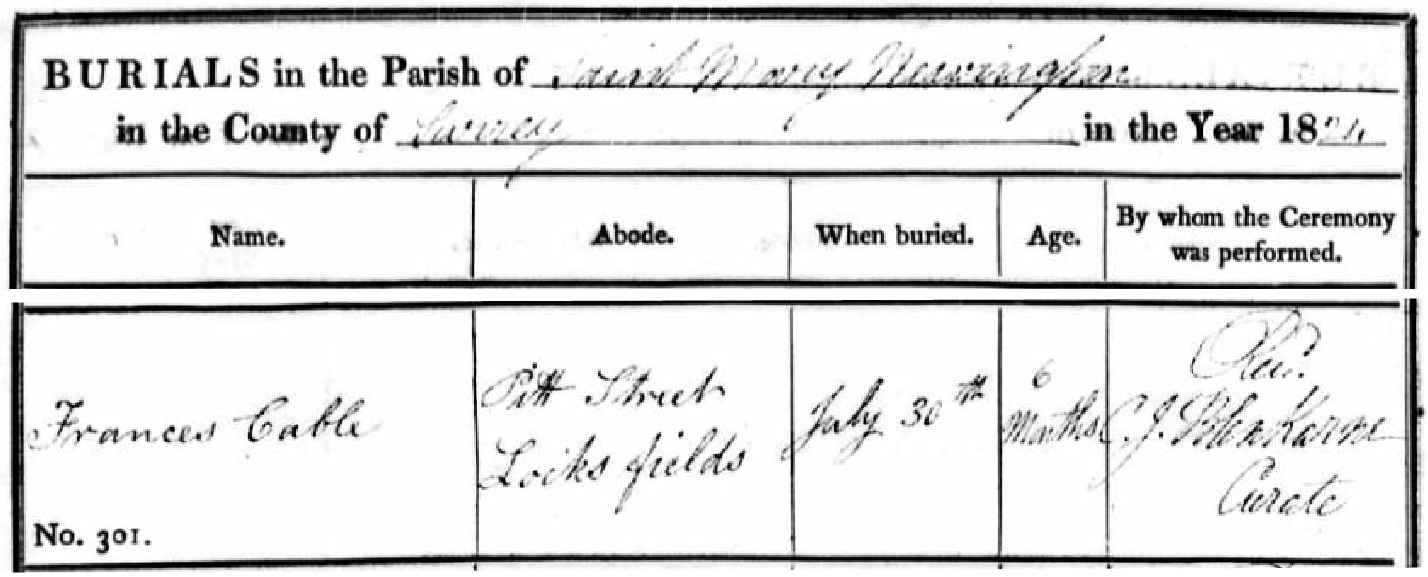 BURIALS in the Parish of Saint Mary Newington
in the County of Surrey in the Year 1824
Name. Abode. When buried. Age. By whom the Ceremony was performed.
Frances Cable
No. 301.
Pitt Street
Locks fields
July 30th
6
Months
Rev.
C. J.
Curate